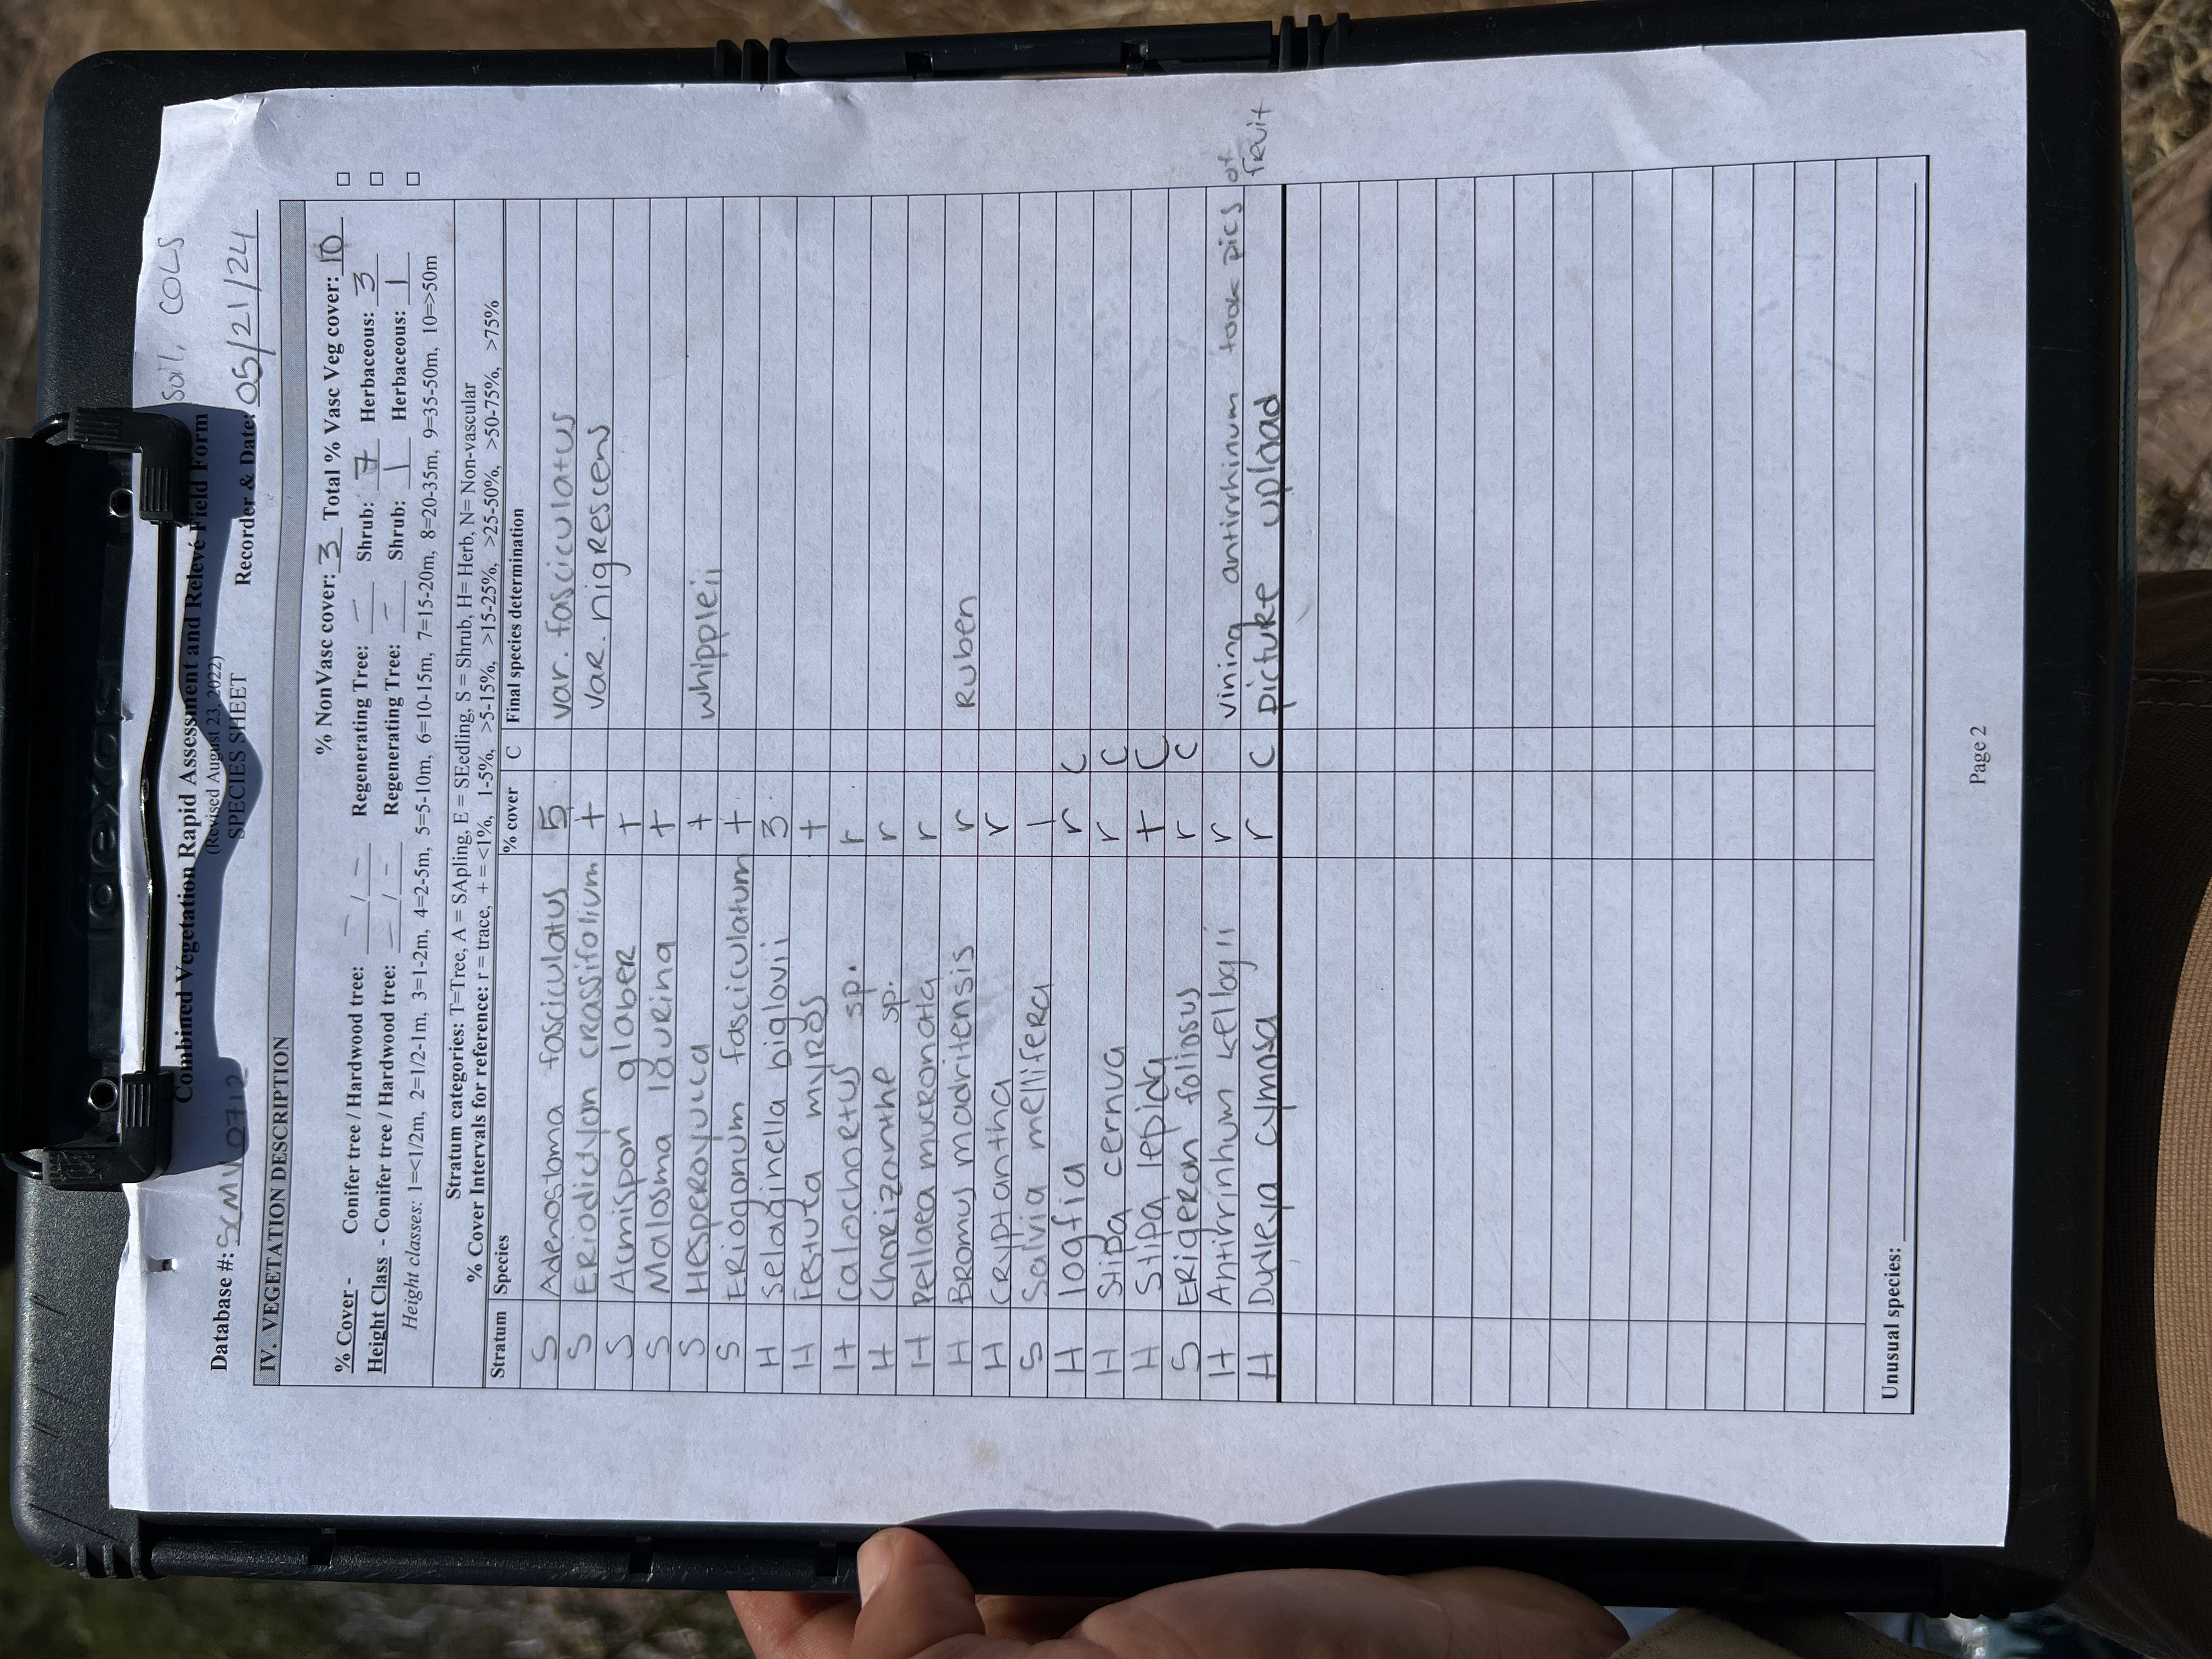 dexas
Soil, COLS
Combined Vegetation Rapid Assessment and Relevé Field Form
(Revised August 23, 2022)
SPECIES SHEET
Database #: SCMV 0712 Recorder & Date: 05/21/24
IV. VEGETATION DESCRIPTION
% NonVasc cover: 3 Total % Vasc Veg cover: 10 □
% Cover - Conifer tree / Hardwood tree: - / - Regenerating Tree: - Shrub: 7 Herbaceous: 3 □
Height Class - Conifer tree / Hardwood tree: - / - Regenerating Tree: - Shrub: 1 Herbaceous: 1 □
Height classes: 1=<1/2m, 2=1/2-1m, 3=1-2m, 4=2-5m, 5=5-10m, 6=10-15m, 7=15-20m, 8=20-35m, 9=35-50m, 10=>50m
Stratum categories: T=Tree, A = SApling, E = SEedling, S = Shrub, H= Herb, N= Non-vascular
% Cover Intervals for reference: r = trace, + = <1%, 1-5%, >5-15%, >15-25%, >25-50%, >50-75%, >75%
Stratum Species % cover C Final species determination
S Adenostoma fasciculatus 5 var. fasciculatus
S Eriodictyon crassifolium + var. nigrescens
S Acmispon glaber +
S Malosma laurina +
S Hesperoyucca + whipplei
S Eriogonum fasciculatum +
H Selaginella biglovii 3
H Festuta myros +
H Calochortus sp. r
H Chorizanthe sp. r
H Pellaea mucronata r
H Bromus madritensis r Ruben
H Cryptantha r
S Salvia mellifera 1
H logfia r C
H Stipa cernua r C
H Stipa lepida + C
S Erigeron foliosus r C
H Antirrinhum kellogii r vining antirrhinum took pics of fruit
H Dudleya cymosa r C picture upload
Unusual species:
Page 2